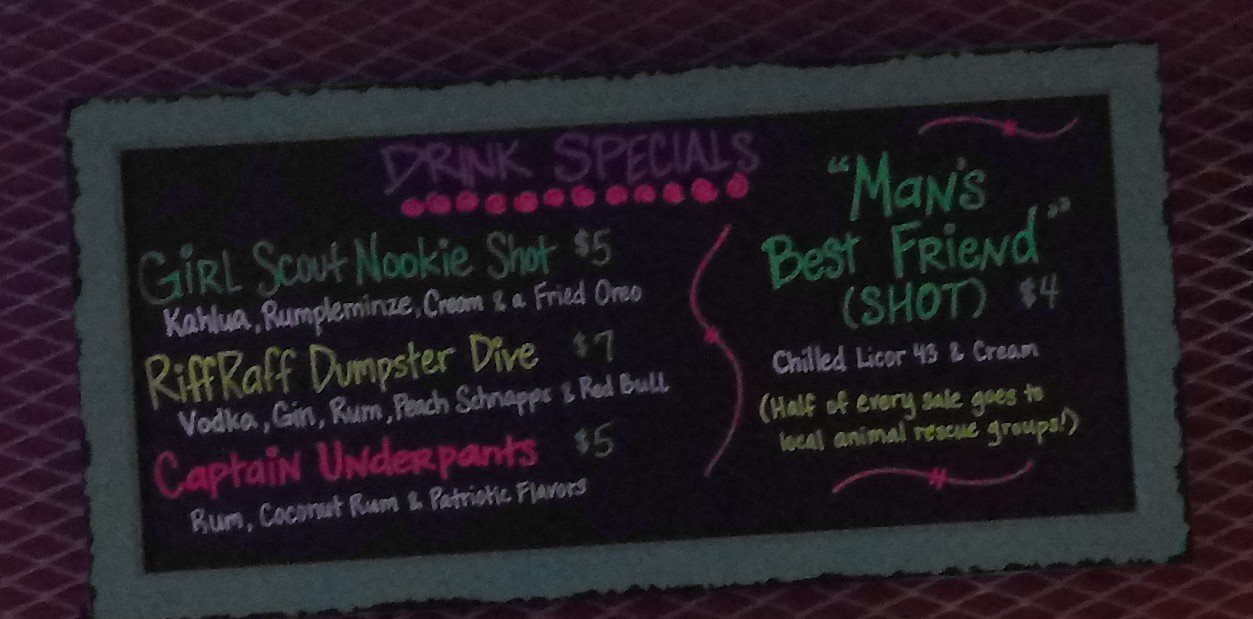 DRINK SPECIALS
GiRL Scout Nookie Shot $5
Kahlua, Rumpleminze, Cream & a Fried Oreo
RiffRaff Dumpster Dive $7
Vodka, Gin, Rum, Peach Schnapps & Red Bull
Captain Underpants $5
Rum, Coconut Rum & Patriotic Flavors
"Man's
Best Friend"
(SHOT) $4
Chilled Licor 43 & Cream
(Half of every sale goes to
local animal rescue groups!)